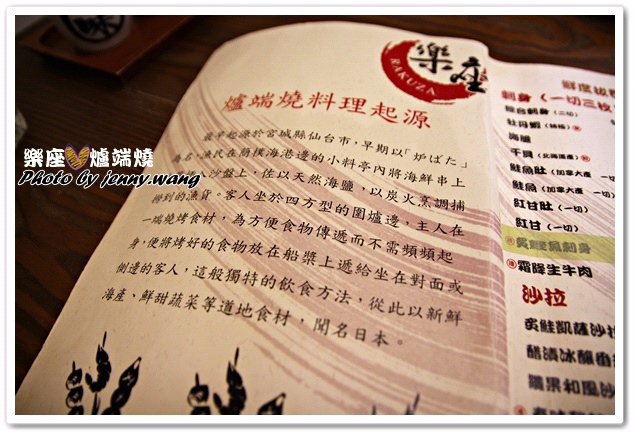 樂座
RAKUZA
爐端燒料理起源
最早起源於宮城縣仙台市，早期以「炉ばた」
為名，漁民在簡樸海港邊的小料亭內將海鮮串上
沙盤上，佐以天然海鹽，以炭火烹調捕
撈到的漁貨。客人坐於四方型的圍爐邊，主人在
一端燒烤食材，為方便食物傳遞而不需頻頻起
身，便將烤好的食物放在船槳上遞給坐在對面或
側邊的客人，這般獨特的飲食方法，從此以新鮮
海產、鮮甜蔬菜等道地食材，聞名日本。
鮮度拔群
刺身（一切三枚
綜合刺身（三切）
牡丹蝦
海膽
干貝（北海道產）
鮭魚肚（加拿大產 一切）
鮭魚（加拿大產 一切）
紅甘肚（一切）
紅甘（一切）
炙鮭魚刺身
霜降生牛肉
沙拉
炙鮭凱薩沙拉
醋漬冰釀番
蘋果和風沙
樂座 爐端燒
Photo by jenny.wang